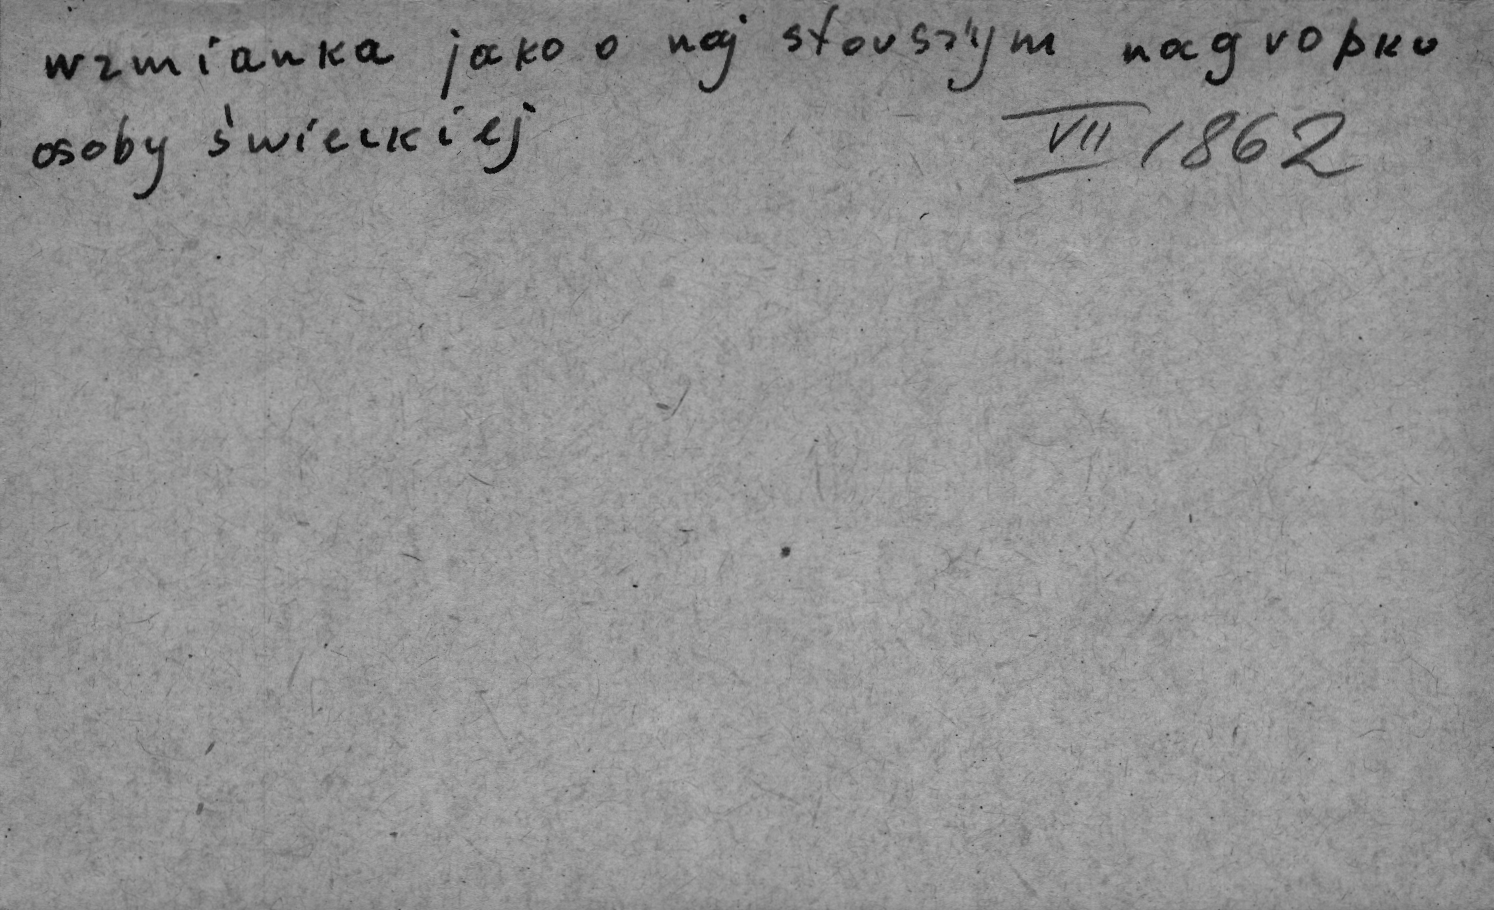 wzmianka jako o naj starszym nagrobku
osoby świeckiej
VII 1862